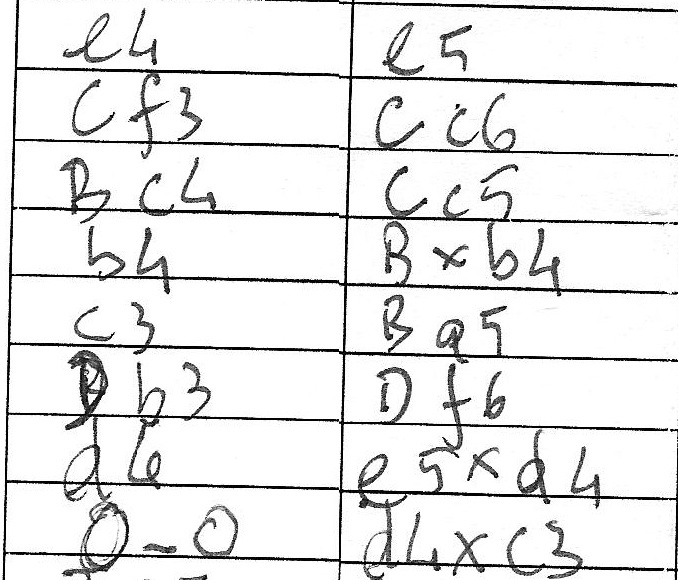 e4 e5
Cf3 Cc6
Bc4 Cc5
b4 Bxb4
c3 Ba5
Db3 Df6
d4 e5xd4
0-0 d4xc3